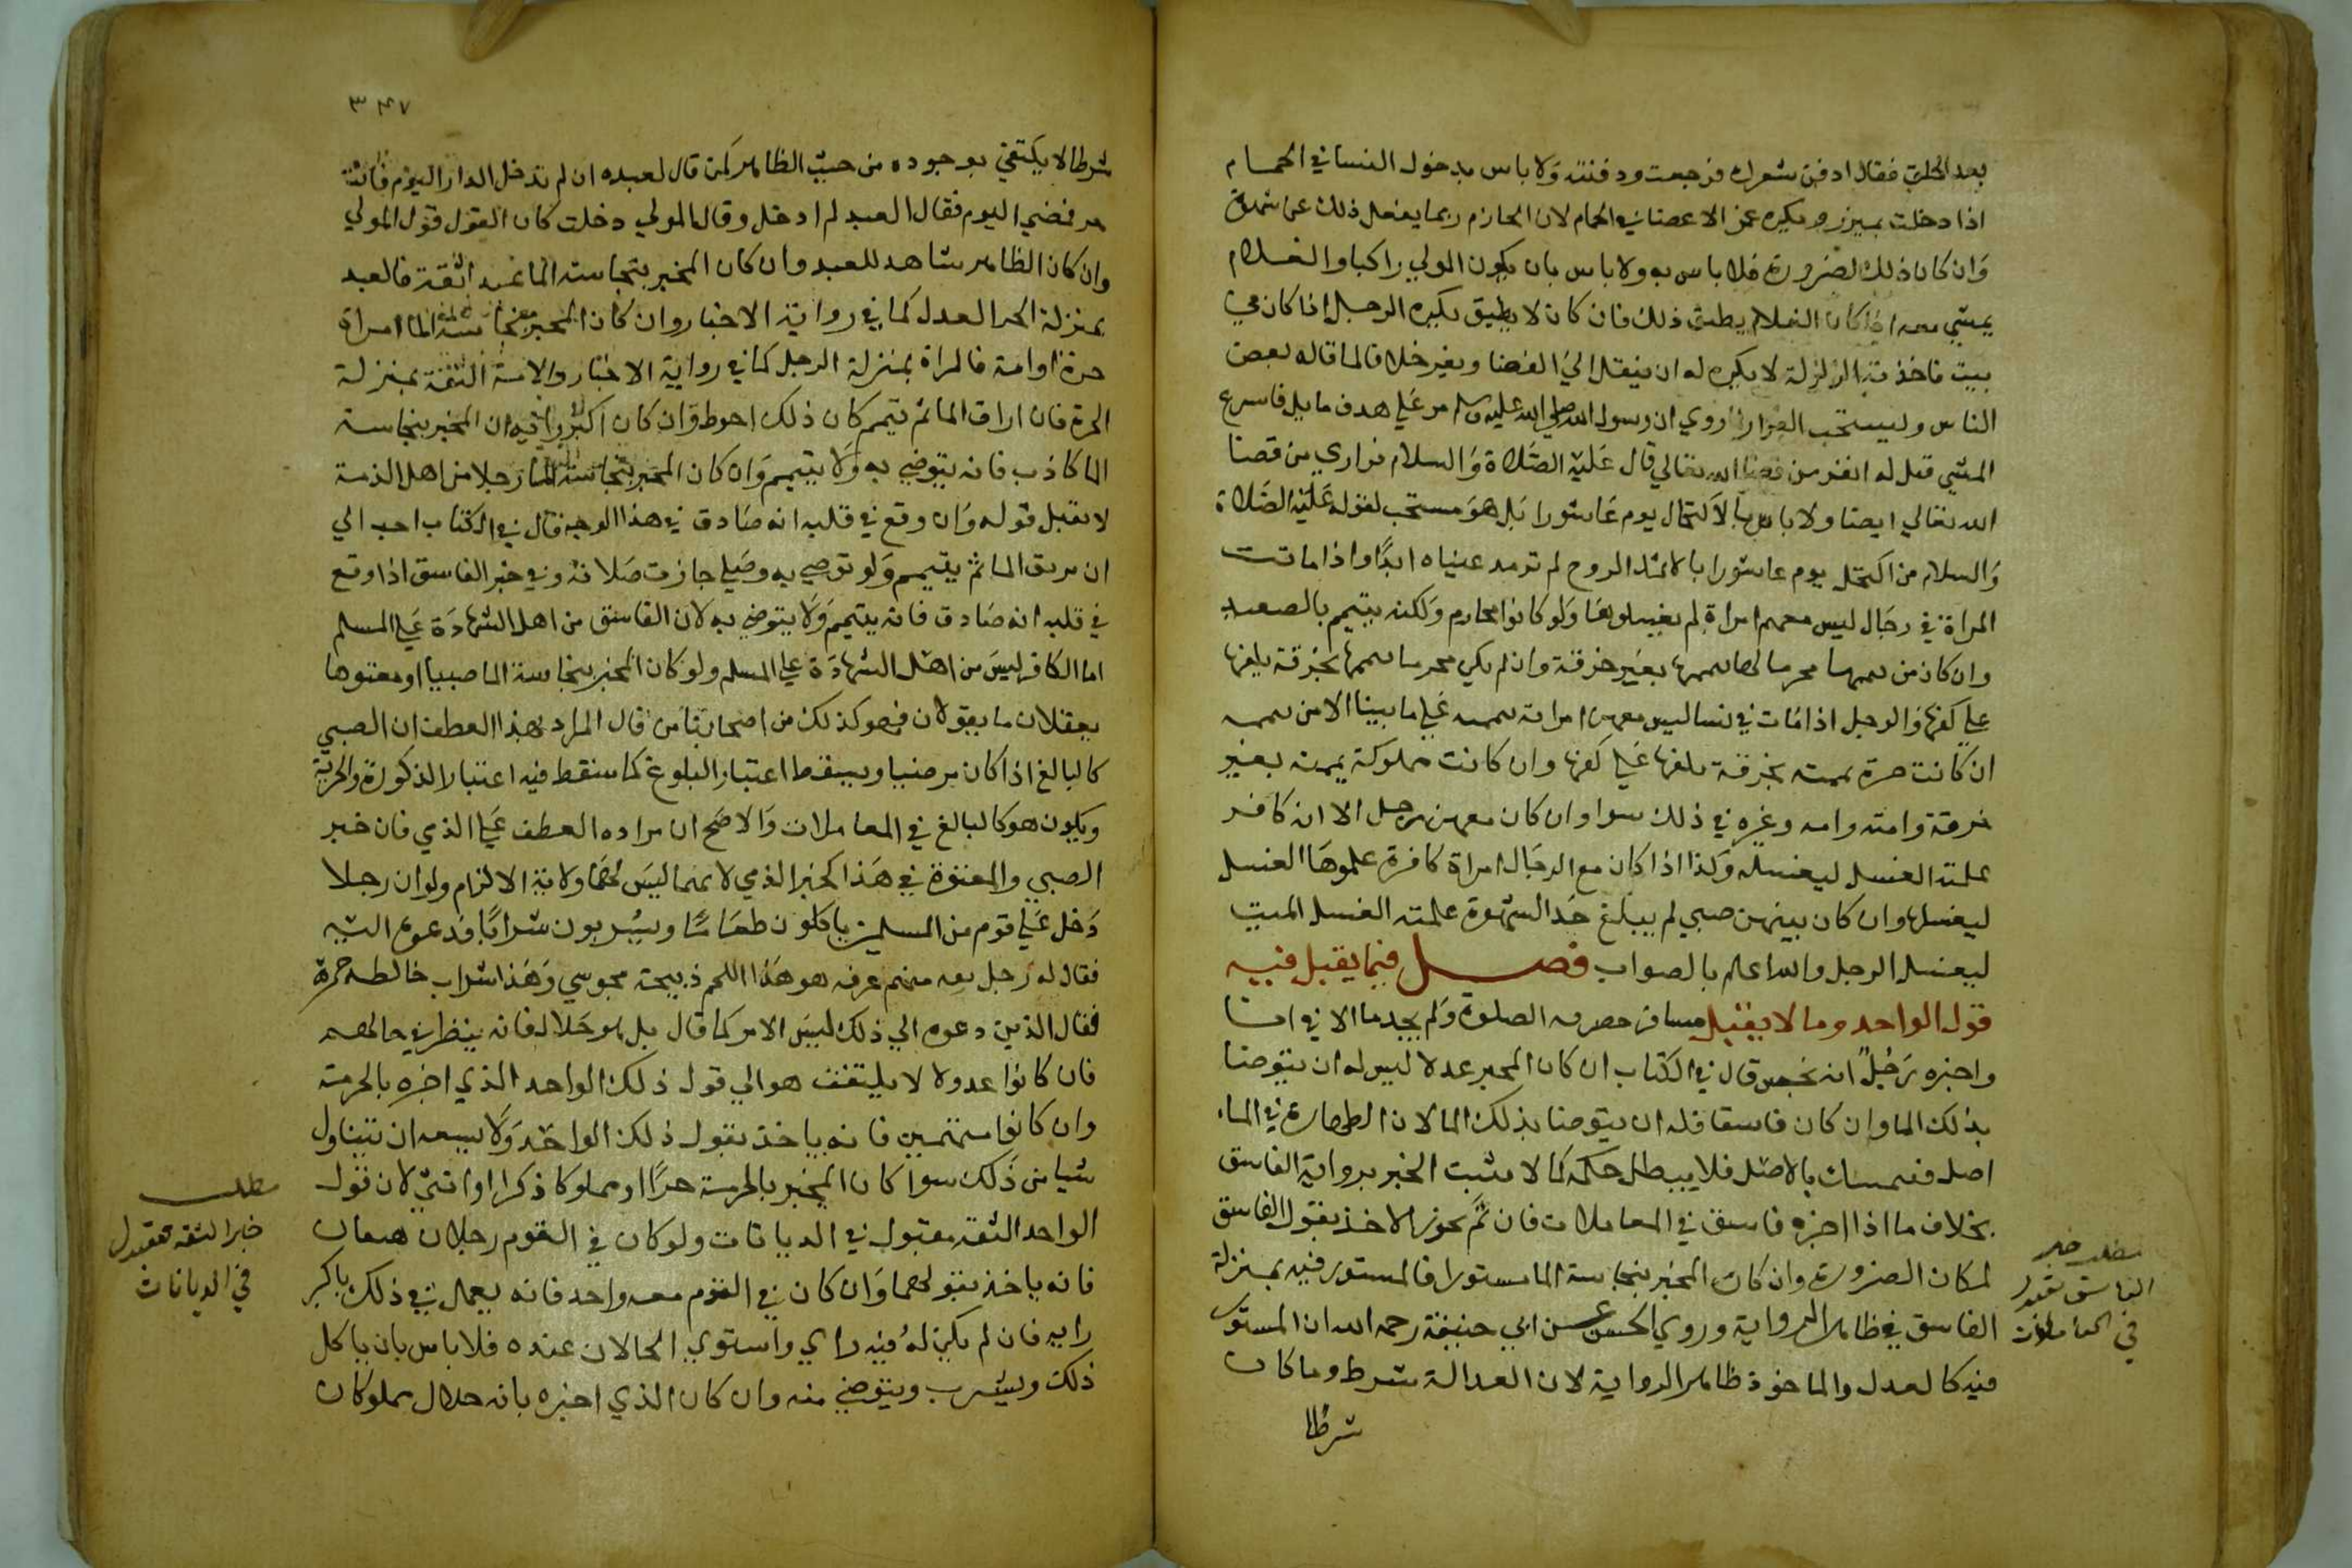 بعد الحلق فقال ادفن شعرك فرجعت ودفنته ولا باس بدخول النسا في الحمام
اذا دخلت بميزر ويكره غمز الاعضا في الحمام لان الخازم ربما يفعل ذلك عن شهوة
وان كان ذلك لضرورة فلا باس به ولا باس بان يكون المولي راكبا والغلام
يمشي معه اذا كان الغلام يطيق ذلك فان كان لا يطيق يكره الرجل اذا كان في
بيت فاخذته الزلزلة لا يكره له ان ينتقل الي الفضا وبغير خلاف لما قاله بعض
الناس وليستحب الفرار لما روي ان رسول الله صلي الله عليه وسلم مر علي هدف مايل فاسرع
المشي فقيل له اتفر من قضا الله تعالي قال عليه الصلاة والسلام فراري من قضا
الله تعالي ايضا ولا باس بالاكتحال يوم عاشورا بل هو مستحب لقوله عليه الصلاة
والسلام من اكتحل يوم عاشورا بالاثمد المروح لم ترمد عيناه ابدا واذا ماتت
المراة في رجال ليس معهم امراة لم يغسلوها ولو كانوا محارم ولكنه ييتيمم بالصعيد
وان كان من ييممها محرما لها ييممها بغير خرقة وان لم يكن محرما ييممها بخرقة يلفها
علي كفها والرجل اذا مات في نسا ليس معهن امراته ييممه علي ما بينا الا من ييممه
ان كانت حرة يممته بخرقة تلفها علي كفها وان كانت مملوكة يممته بغير
خرقة وامته وامه وغيره في ذلك سوا وان كان معهن رجل الا انه كافر
علمته الغسل ليغسله وكذا اذا كان مع الرجال امراة كافرة علموها الغسل
ليغسلها وان كان بينهن صبي لم يبلغ حد الشهوة علمته الغسل الميت
ليغسل الرجل والله اعلم بالصواب فصل فيما يقبل فيه
قول الواحد وما لا يقبل مسافر حضرته الصلوة ولم يجد ما الا في انا
واخبره رجل انه نجس قال في الكتاب ان كان المخبر عدلا ليس له ان يتوضا
بذلك الما وان كان فاسقا فله ان يتوضا بذلك الما لان الطهارة في الماء
اصل فتمسك بالاصل فلا يبطل حكمه كما لا يثبت الخبر برواية الفاسق
بخلاف ما اذا اخبره فاسق في المعاملات فان ثم يجوز الاخذ بقول الفاسق
لمكان الضرورة وان كان المخبر بنجاسة الما مستورا فالمستور فيه بمنزلة
الفاسق في ظاهر الرواية وروي الحسن عن ابي حنيفة رحمه الله ان المستور
فيه كالعدل والماخوذ ظاهر الرواية لان العدالة شرط وما كان
شرطا
مطلب خبر
الفاسق يقبل
في المعاملات
٣٤٧
شرطا لا يكتفي بوجوده من حيث الظاهر كمن قال لعبده ان لم تدخل الدار اليوم فانت
حر فمضي اليوم فقال العبد لم ادخل وقال المولي دخلت كان القول قول المولي
وان كان الظاهر شاهد للعبد وان كان المخبر بنجاسة الما عبد اثقة فالعبد
بمنزلة الحر العدل كما في رواية الاخبار وان كان المخبر بنجاسة الما امراة
حرة او امة فالمراة بمنزلة الرجل كما في رواية الاخبار والامة الثقة بمنزلة
الحرة فان اراق الما ثم تيمم كان ذلك احوط وان كان اكبر رايه ان المخبر بنجاسة
الما كاذب فانه يتوضي به ولا يتيمم وان كان المخبر بنجاسة الما رجلا من اهل الذمة
لا يقبل قوله وان وقع في قلبه انه صادق في هذا الوجه قال في الكتاب احب الي
ان يريق الما ثم يتيمم ولو توضي به وصلي جازت صلاته وفي خبر الفاسق اذا وقع
في قلبه انه صادق فانه يتيمم ولا يتوضي به لان الفاسق من اهل الشهادة علي المسلم
اما الكافر ليس من اهل الشهادة علي المسلم ولو كان المخبر بنجاسة الما صبيا او معتوها
يعقلان ما يقولان فهو كذلك من اصحابنا من قال المراد بهذا العطف ان الصبي
كالبالغ اذا كان مرضيا ويسقط اعتبار البلوغ كما سقط فيه اعتبار الذكورة والحرية
ويكون هو كالبالغ في المعاملات والاصح ان مراده العطف علي الذمي فان خبر
الصبي والمعتوة في هذا كخبر الذمي لانهما ليس لهما ولاية الالزام ولو ان رجلا
دخل علي قوم من المسلمين ياكلون طعاما ويشربون شرابا فدعوه اليه
فقال له رجل ثقه منهم عرفه هو هذا اللحم ذبيحة مجوسي وهذا شراب خالطه خمرة
فقال الذين دعوه الي ذلك ليس الامر كما قال بل هو حلال فانه ينظر في حالهم
فان كانوا عدولا لا يلتفت هو الي قول ذلك الواحد الذي اخبره بالحرمة
وان كانوا متهمين فانه ياخذ بقول ذلك الواحد ولا يسعه ان يتناول
شيا من ذلك سوا كان المخبر بالحرمة حرا او مملوكا ذكرا او انثي لان قول
الواحد الثقه مقبول في الديانات ولو كان في القوم رجلان ثقتان
فانه ياخذ بقولهما وان كان في القوم ثقة واحد فانه يعمل في ذلك باكبر
رايه فان لم يكن له فيه راي واستوي الحالان عنده فلا باس بان ياكل
ذلك ويشرب ويتوضي منه وان كان الذي اخبره بانه حلال مملوكان
مطلب
خبر الثقه مقبول
في الديانات